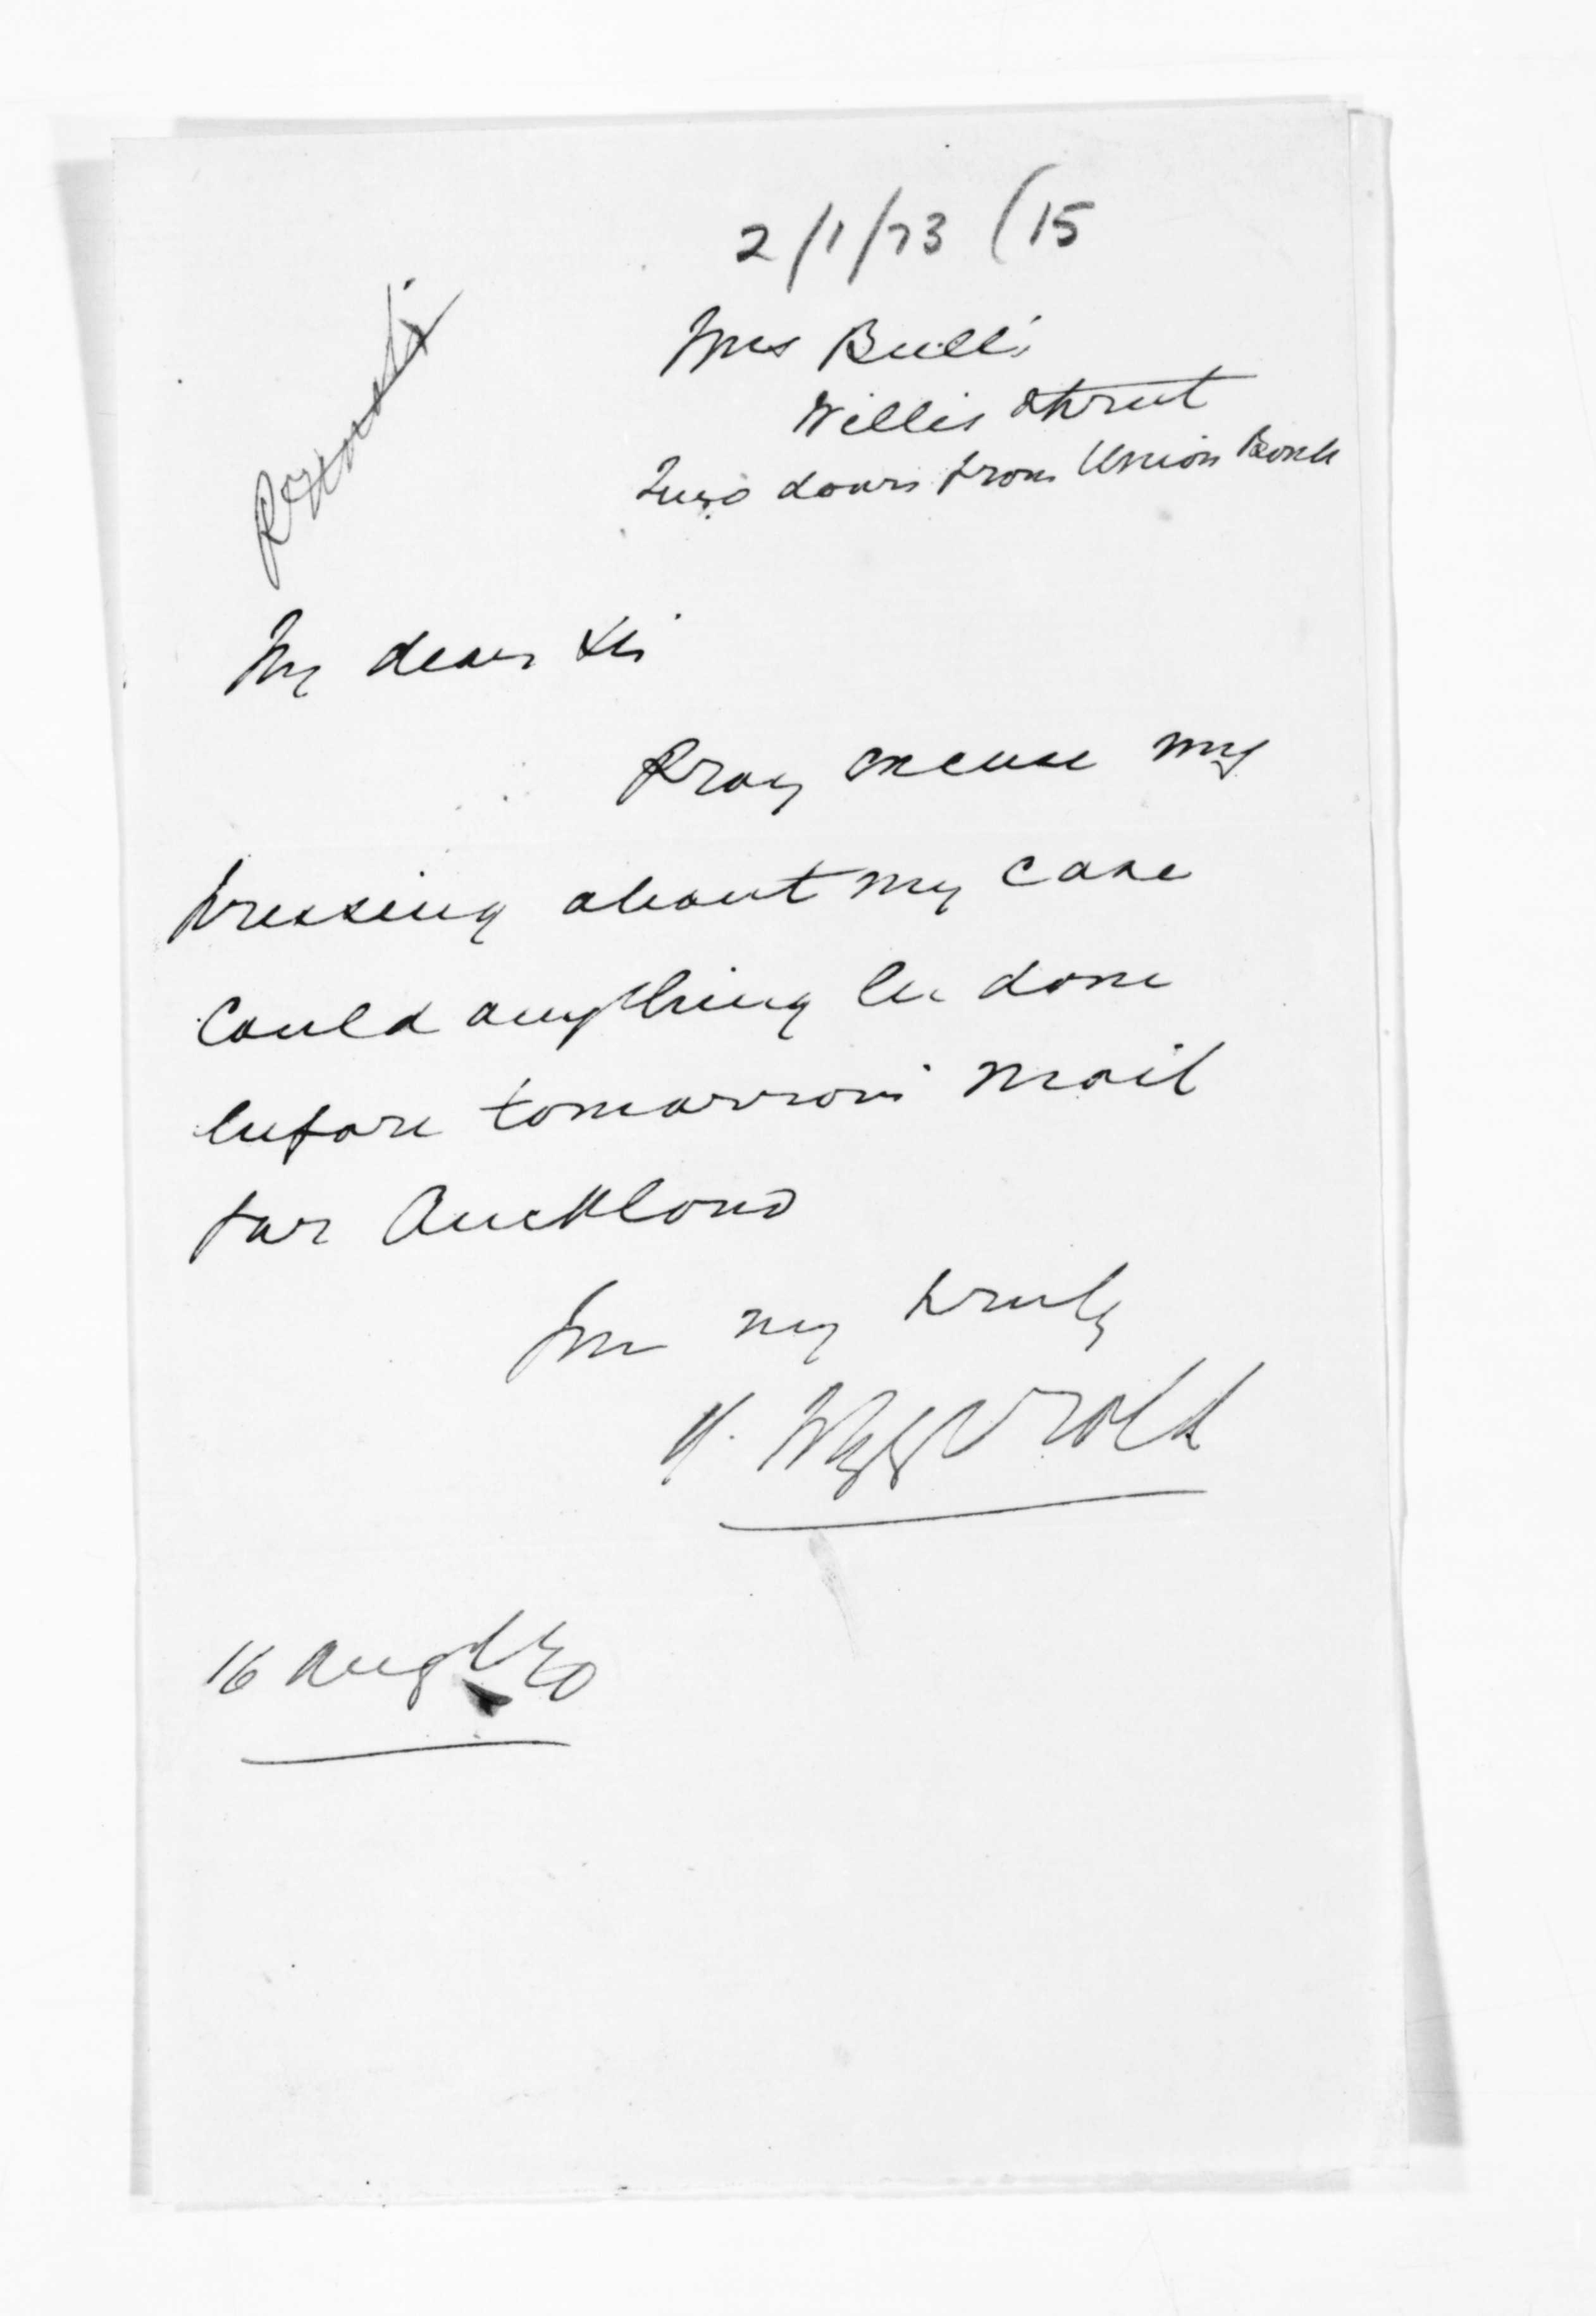 2/1/73 (15
Mrs Bull's
Willis Street
Two doors from Union Bank
My dear Sir
Pray excuse my
pressing about my case
Could anything be done
before tomorrows mail
for Auckland
truly
16 Augt